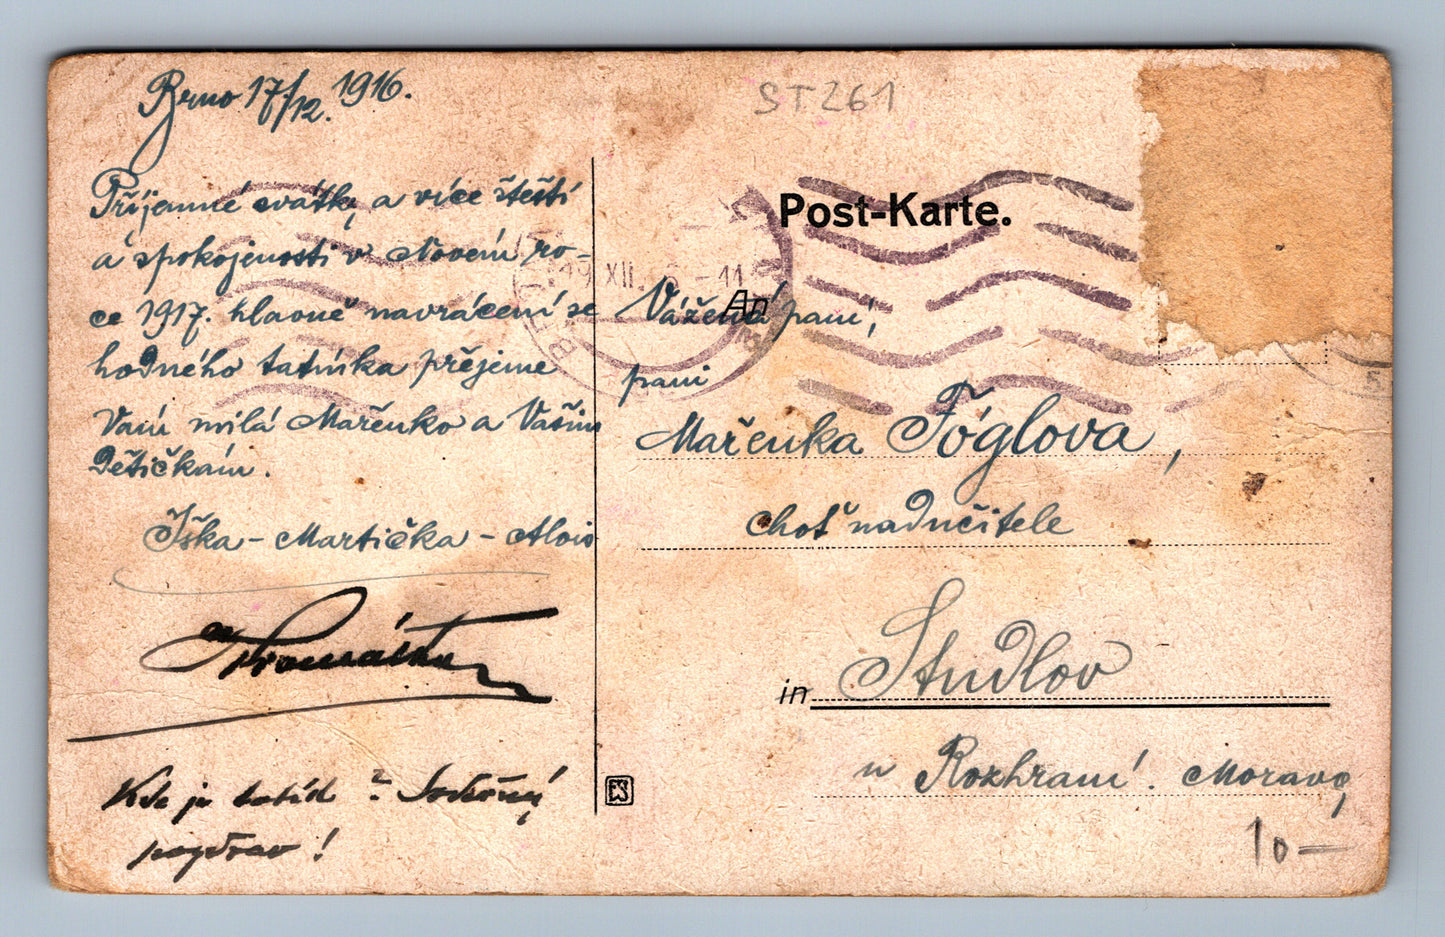 Brno 17/12. 1916.
ST261
Příjemné svátky a více štěstí
a spokojenosti v novém ro-
ce 1917. hlavně navrácení se
hodného tatínka přějeme
Vám milá Mařenko a Vašim
Dětičkám.
Iška - Martička - Alois
Kde je tatíček? Srdečný
pozdrav!
Post-Karte.
19 XII. 16 - 11
An
Vážená paní,
paní
Mařenka Fóglova,
choť nadučitele
in Studlov
u Rozhraní. Morava
10-